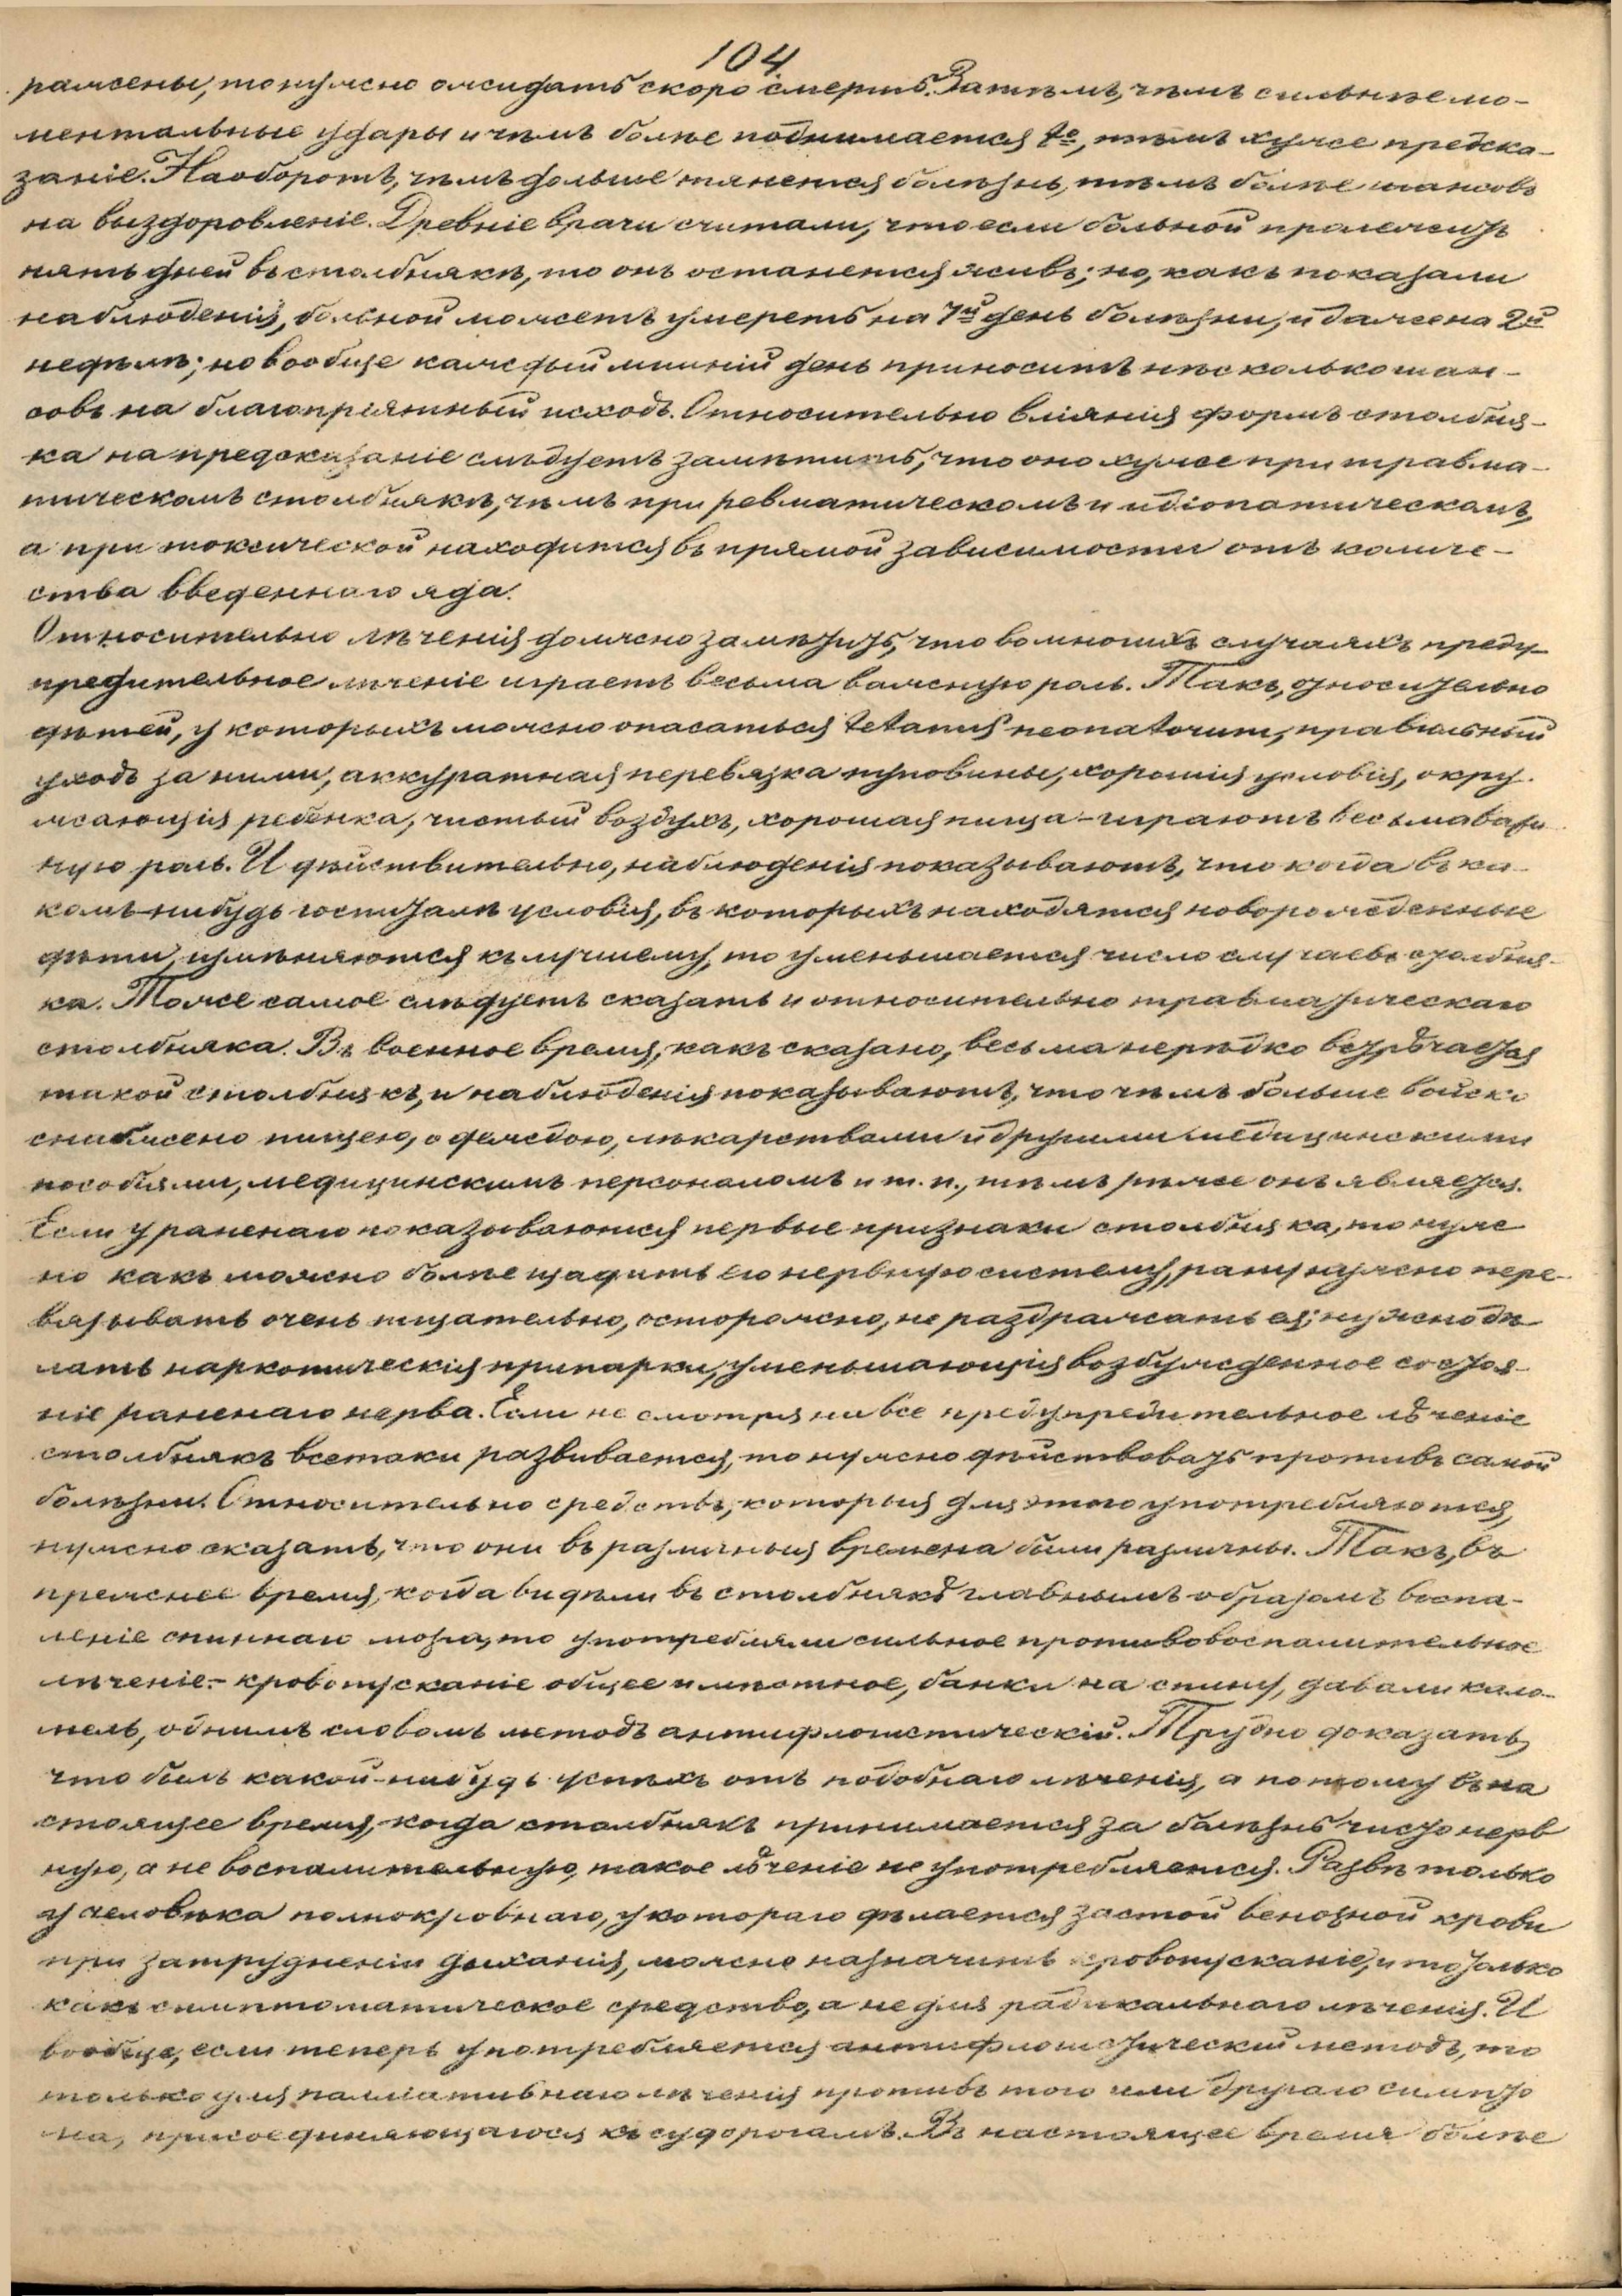 104
раженье, то нужно ожидать скоро смерть. Затѣмъ, чѣмъ сильнѣе мо-
ментальные удары и чѣмъ болѣе поднимается t°, тѣмъ хуже предска-
заніе. Наоборотъ, чѣмъ дольше тянется болѣзнь, тѣмъ болѣе шансовъ
на выздоровленіе. Древніе врачи считали, что если больной проживетъ
пять дней въ столбнякѣ, то онъ останется живъ; но, какъ показали
наблюденія, больной можетъ умереть на 7й день болѣзни, и даже на 2й
недѣлѣ; но вообще каждый лишній день приноситъ нѣсколько шан-
совъ на благопріятный исходъ. Относительно вліянія формъ столбня-
ка на предсказаніе слѣдуетъ замѣтить, что оно хуже при травма-
тическомъ столбнякѣ, чѣмъ при ревматическомъ и идіопатическомъ,
а при токсической находится въ прямой зависимости отъ количе-
ства введеннаго яда.
Относительно лѣченія должно замѣтить, что во многихъ случаяхъ преду-
предительное лѣченіе играетъ весьма важную роль. Такъ, относительно
дѣтей, у которыхъ можно опасаться tetanus neonatorum, правильный
уходъ за ними, аккуратная перевязка пуповины, хорошія условія, окру-
жающія ребенка, чистый воздухъ, хорошая пища - играютъ весьма важ
ную роль. И дѣйствительно, наблюденія показываютъ, что когда въ ка-
комъ-нибудь госпиталѣ условія, въ которыхъ находятся новорожденные
дѣти, измѣняются къ лучшему, то уменьшается число случаевъ столбня-
ка. Тоже самое слѣдуетъ сказать и относительно травматическаго
столбняка. Въ военное время, какъ сказано, весьма нерѣдко встрѣчается
такой столбнякъ, и наблюденія показываютъ, что чѣмъ больше войско
снабжено пищею, одеждою, лѣкарствами и другими медицинскими
пособіями, медицинскимъ персоналомъ и т. п., тѣмъ рѣже онъ является.
Если у раненаго показываются первые признаки столбняка, то нуж-
но какъ можно болѣе щадить его нервную систему, рану нужно пере-
вязывать очень тщательно, осторожно, не раздражать ея; нужно дѣ-
лать наркотическія припарки, уменьшающія возбужденное состоя-
ніе раненаго нерва. Если не смотря на все предупредительное лѣченіе
столбнякъ всетаки развивается, то нужно дѣйствовать противъ самой
болѣзни. Относительно средствъ, которыя для этого употребляются,
нужно сказать, что они въ различныя времена были различны. Такъ, въ
прежнее время, когда видѣли въ столбнякѣ главнымъ образомъ воспа-
леніе спиннаго мозга, то употребляли сильное противовоспалительное
лѣченіе - кровопусканіе общее и мѣстное, банки на спину, давали кало-
мель, однимъ словомъ методъ антифлогистическій. Трудно доказать,
что былъ какой-нибудь успѣхъ отъ подобнаго лѣченія, а потому въ на
стоящее время, когда столбнякъ принимается за болѣзнь чисто нерв
ную, а не воспалительную, такое лѣченіе не употребляется. Развѣ только
у человѣка полнокровнаго, у котораго дѣлается застой венозной крови
при затрудненіи дыханія, можно назначить кровопусканіе, и то только
какъ симптоматическое средство, а не для радикальнаго лѣченія. И
вообще, если теперь употребляется антифлогистическій методъ, то
только для палліативнаго лѣченія противъ того или другаго симпто
ма, присоединяющагося къ судорогамъ. Въ настоящее время болѣе